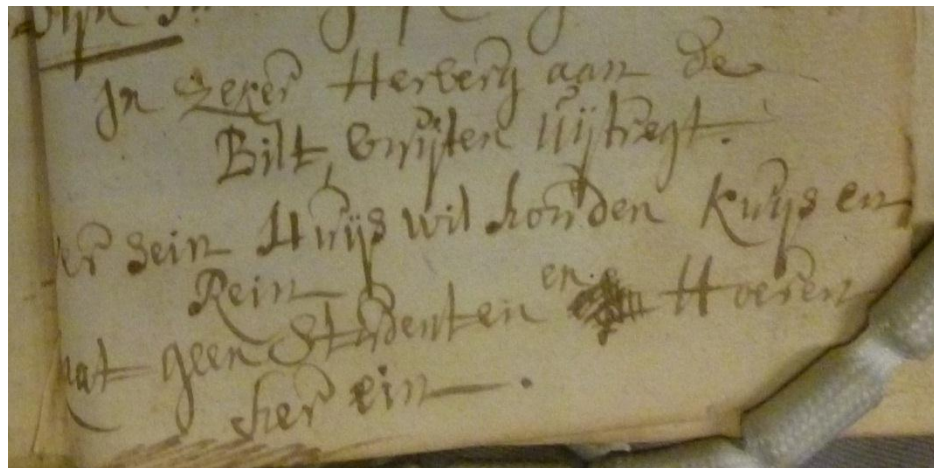 Jn Zeker Herberg aan de
Bilt, buijten Uijtregt.
sein Huijs wil houden Kuijs en
Rein
geen Studenten en Hoeren
her ein.